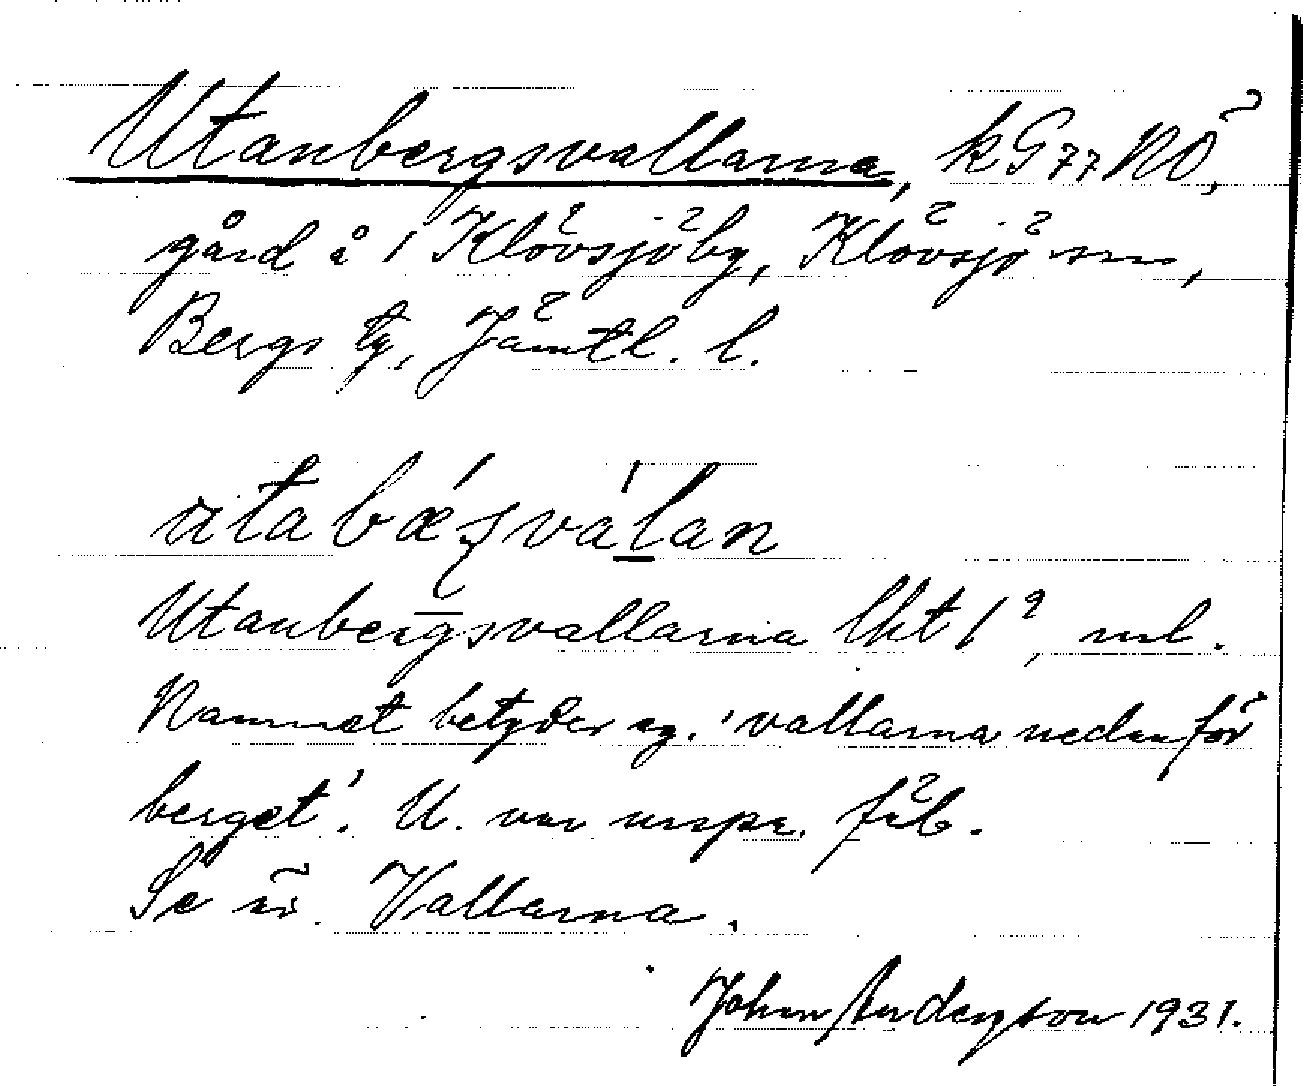 Utanbergsvallarna, kG77NÖ,
gård å 1 Klövsjö by, Klövsjö sn,
Bergs tg, Jämtl. l.
utabæʂvalan
Utanbergsvallarna lkt 1², ml.
Namnet betyder eg. 'vallarna nedanför
berget'. U. var urspr. fäb.
Se äv. Vallarna.
John Andersson 1931.